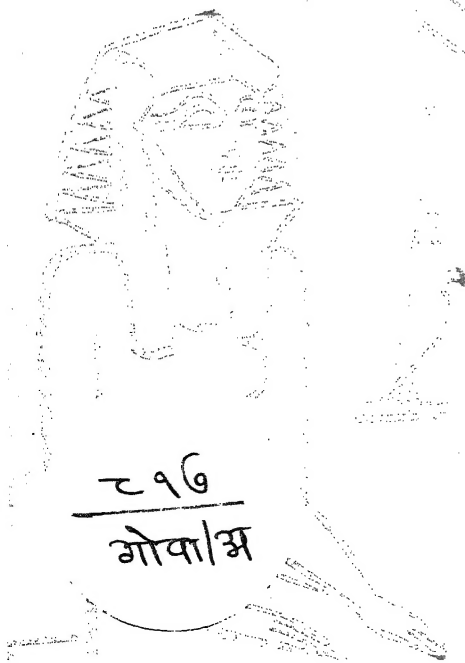 ८१७
गोवा/अ